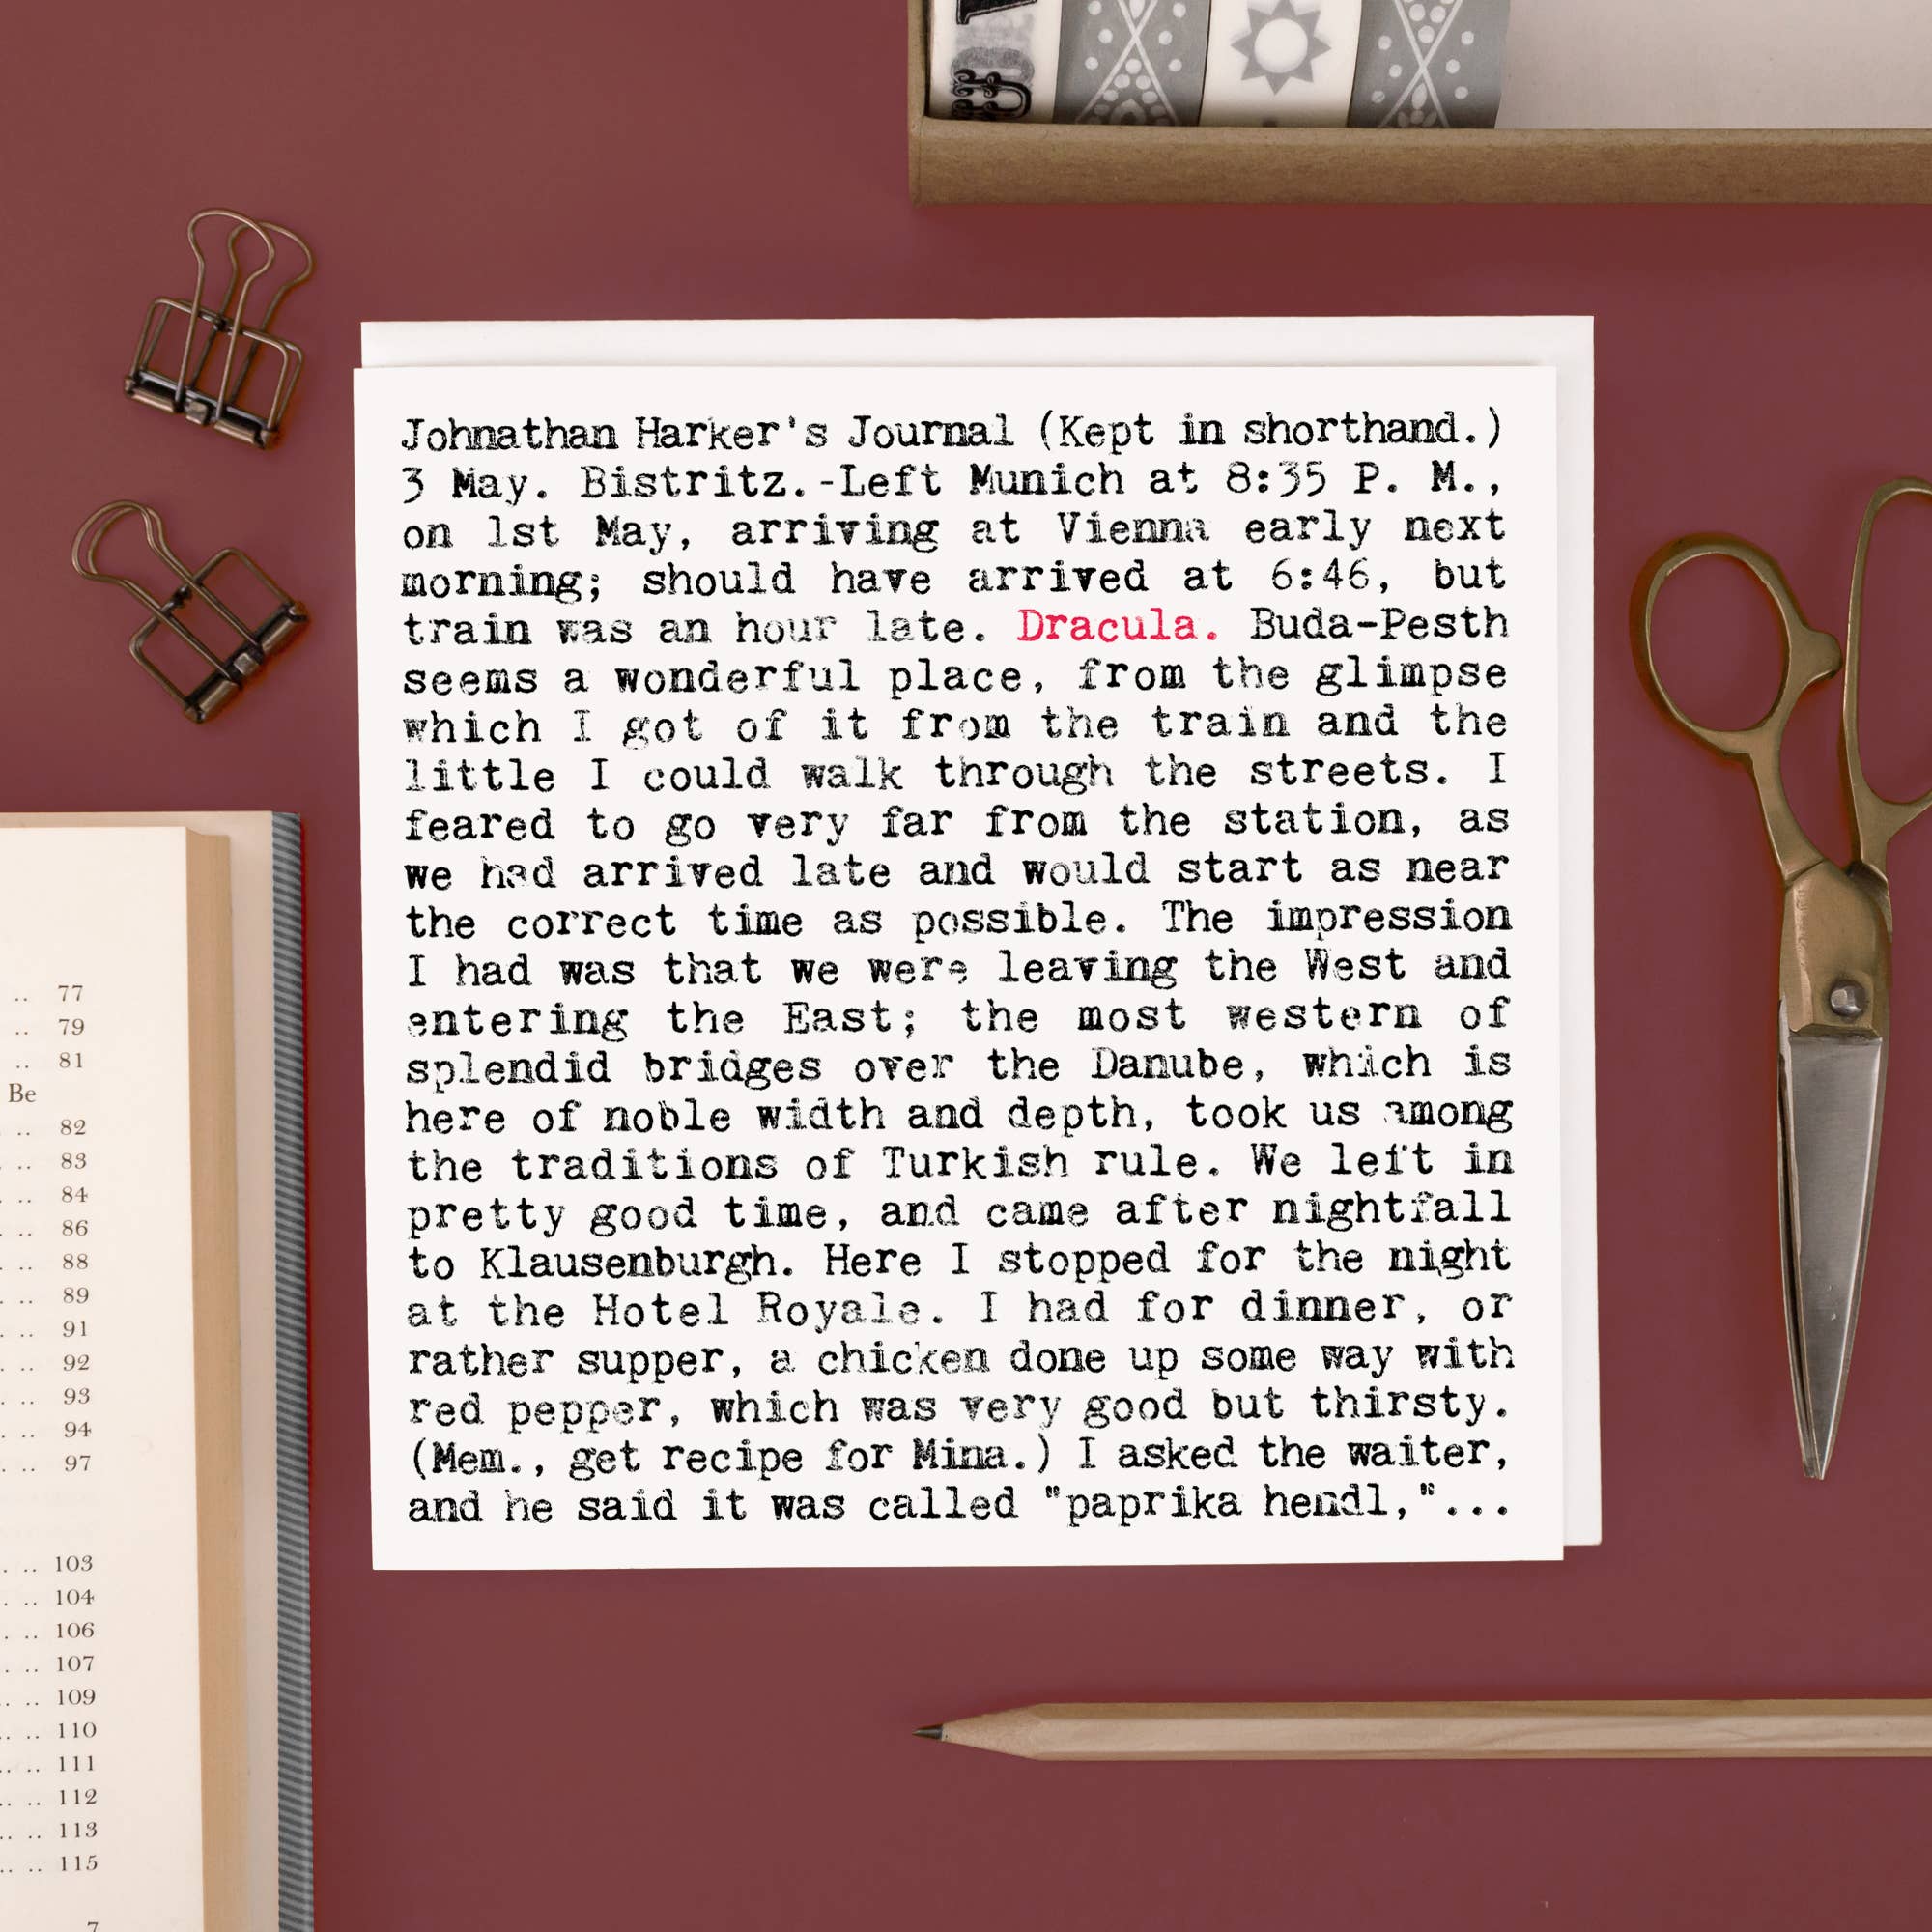 Johnathan Harker's Journal (Kept in shorthand.)
3 May. Bistritz.-Left Munich at 8:35 P. M.,
on 1st May, arriving at Vienna early next
morning; should have arrived at 6:46, but
train was an hour late. Dracula. Buda-Pesth
seems a wonderful place, from the glimpse
which I got of it from the train and the
little I could walk through the streets. I
feared to go very far from the station, as
we had arrived late and would start as near
the correct time as possible. The impression
I had was that we were leaving the West and
entering the East; the most western of
splendid bridges over the Danube, which is
here of noble width and depth, took us among
the traditions of Turkish rule. We left in
pretty good time, and came after nightfall
to Klausenburgh. Here I stopped for the night
at the Hotel Royale. I had for dinner, or
rather supper, a chicken done up some way with
red pepper, which was very good but thirsty.
(Mem., get recipe for Mina.) I asked the waiter,
and he said it was called "paprika hendl,"...
.. 77
.. 79
.. 81
Be
.. 82
. .. 83
. .. 84
. .. 86
. .. 88
. .. 89
. .. 91
. .. 92
. .. 93
. .. 94
. .. 97
. .. 103
. .. 104
. .. 106
. .. 107
.. .. 109
.. .. 110
.. .. 111
.. .. 112
.. .. 113
.. .. 115
7